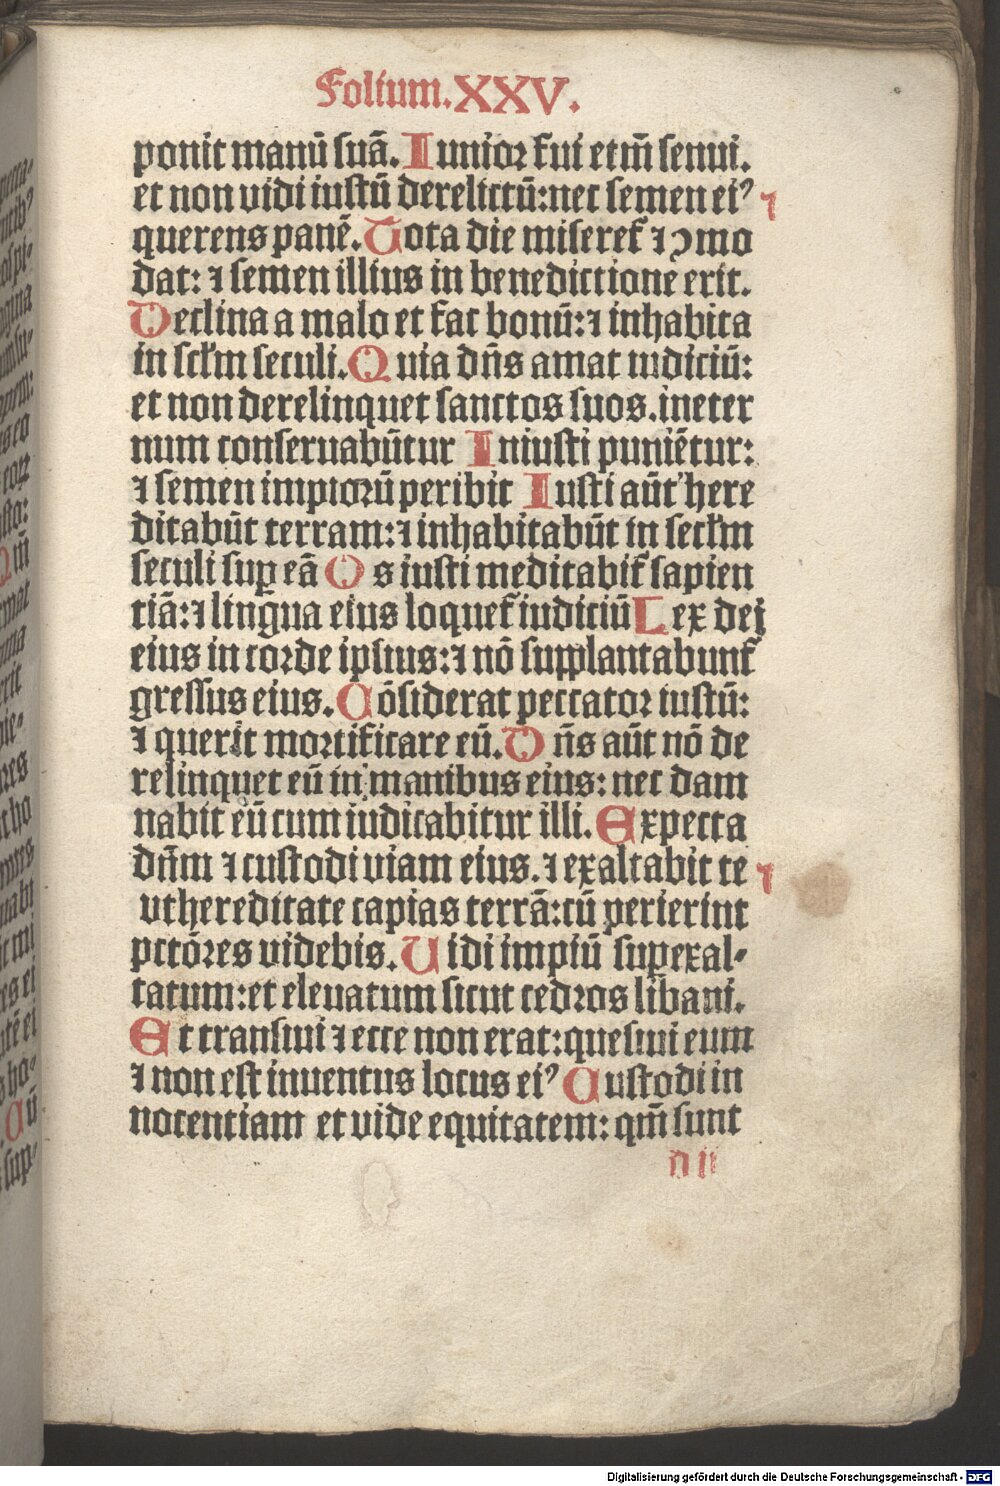 Folium.XXV.
ponit manū suā. Iunior fui etm̄ senui.
et non vidi iustū derelictū: nec semen eiꝰ
querens panē. Tota die miseret᷑ ⁊ ꝯmo
dat: ⁊ semen illius in benedictione erit.
Declina a malo et fac bonū: ⁊ inhabita
in scl̄m seculi. Quia dn̄s amat iudiciū:
et non derelinquet sanctos suos. ineter
num conseruabūtur Iniusti puniētur:
⁊ semen impiorū peribit Iusti aūt here
ditabūt terram: ⁊ inhabitabūt in secl̄m
seculi suꝑ eā Os iusti meditabit᷑ sapien
tiā: ⁊ lingua eius loquet᷑ iudiciū Lex dei
eius in corde ipsius: ⁊ nō supplantabunt᷑
gressus eius. Cōsiderat peccator iustū:
⁊ querit mortificare eū. Dn̄s aūt nō de
relinquet eū in manibus eius: nec dam
nabit eū cum iudicabitur illi. Expecta
dn̄m ⁊ custodi viam eius. ⁊ exaltabit te
vt hereditate capias terrā: cū perierint
pctōres videbis. Uidi impiū suꝑexal-
tatum: et eleuatum sicut cedros libani.
Et transiui ⁊ ecce non erat: quesiui eum
⁊ non est inuentus locus eiꝰ Custodi in
nocentiam et vide equitatem: qm̄ sunt
Digitalisierung gefördert durch die Deutsche Forschungsgemeinschaft - DFG